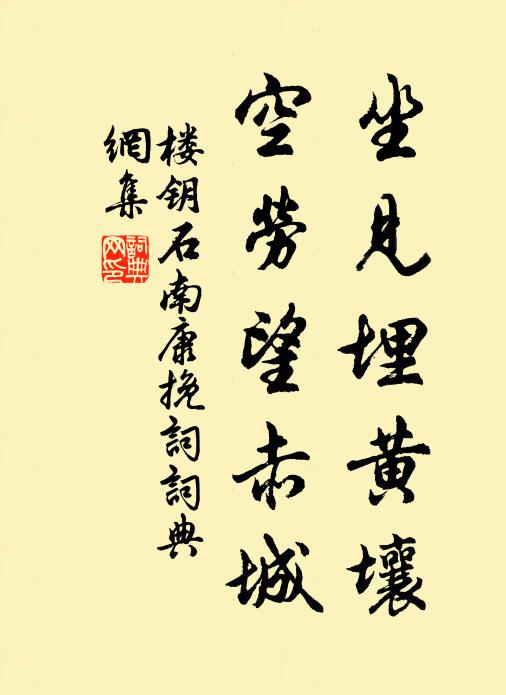 坐見埋黄壤
空勞望赤城
楼钥石南康挽詞詞典
網集
詞典
网印